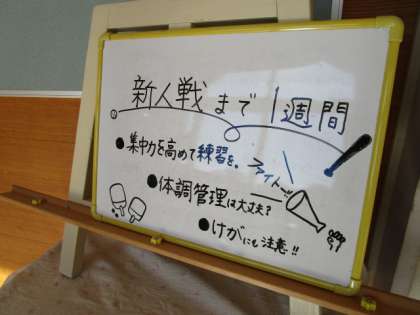 新人戦まで1週間
●集中力を高めて練習を。
ファイトー
●体調管理は大丈夫?
●けがにも注意!!